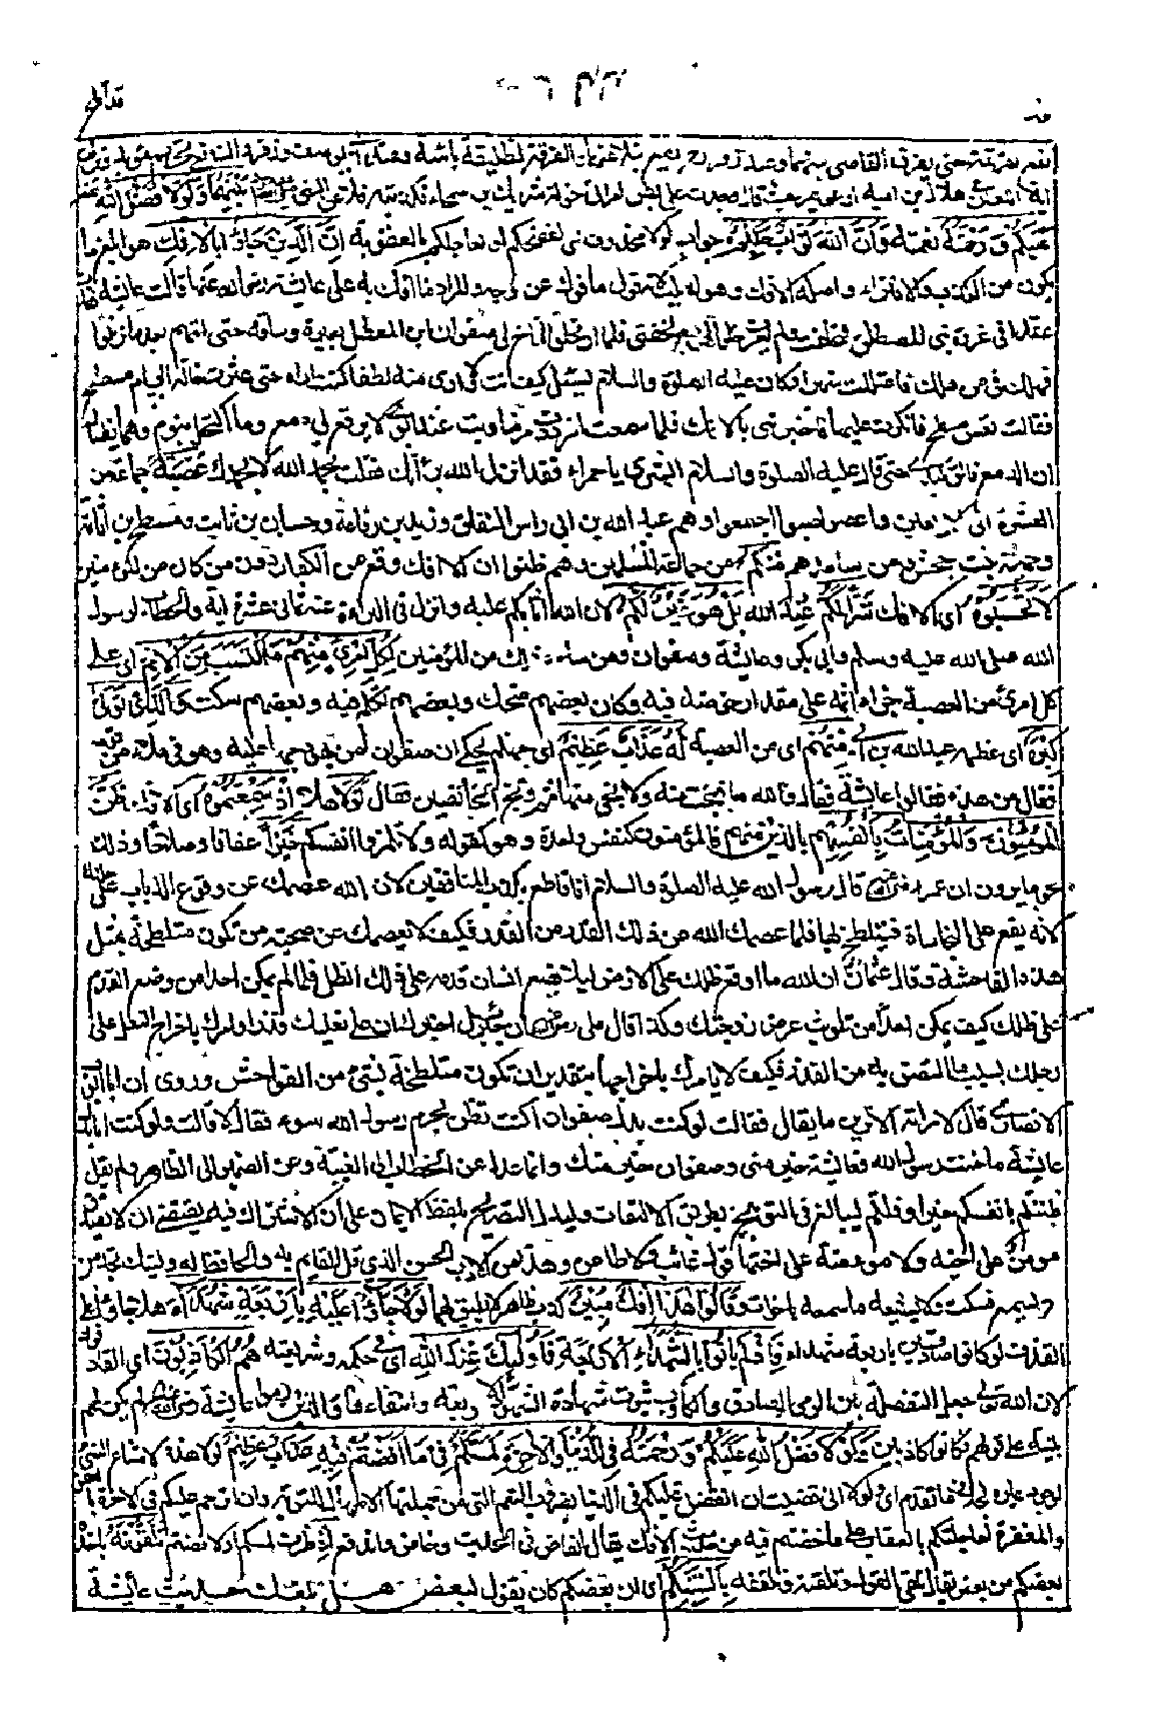 حتى يفرق القاضي بينهما وعند زفر رح
آية هلال بن امية او عويمر حيث قال وجدت على بطن امراتي خولة شريك بن سحماء ولولا فضل الله
عليكم ورحمته نعمته وأن الله تواب حكيم جواب لولا محذوف اى لفضحكم او لعاجلكم بالعقوبة إن الذين جاؤا بالافك هو ابلغ ما
يكون من الكذب والافتراء واصله الافك وهو القلب لانه قول مأفوك عن وجهه والمراد ما افك به على عائشة رضى الله عنها قالت عائشة فقدت
عقدا فى غزوة بنى المصطلق فتخلفت فلما ارتحلوا اناخ لى صفوان ابن المعطل بعيره وساقه حتى اتاهم بعد ما نزلوا
فهلك فى من هلك فاعتللت شهرا وكان عليه الصلوة والسلام يسئل كيف انت ولا ارى منه لطفا كنت اراه حتى عثرت خالة ابى ام مسطح
فقالت تعس مسطح فانكرت عليها فاخبرتنى بالافك فلما سمعت ازددت مرضا وبت عند ابوى لا يرقع لى دمع وما اكتحل بنوم وهما يظنان
ان الدمع فالق كبدى حتى قال عليه الصلوة والسلام ابشرى يا حميراء فقد انزل الله براءتك فقلت بحمد الله لا بحمدك عصبة جماعة من
العشرة الى الاربعين واعصوصبوا اجتمعوا وهم عبد الله بن ابى راس النفاق وزيد بن رفاعة وحسان بن ثابت ومسطح بن اثاثة
وحمنة بنت جحش ومن ساعدهم منكم من جماعة المسلمين وهم ظنوا ان الافك وقع من الكفار دون من كان من المؤمنين
لا تحسبوه اى الافك شرا لكم عند الله بل هو خير لكم لان الله اثابكم عليه وانزل فى البراءة منه ثمانى عشرة آية والخطاب لرسول
الله صلى الله عليه وسلم وابى بكر وعائشة وصفوان ومن ساءه ذلك من المؤمنين لكل امرئ منهم ما اكتسب من الاثم اى على
كل امرئ من العصبة جزاء اثمه على مقدار خوضه فيه وكان بعضهم ضحك وبعضهم تكلم فيه وبعضهم سكت والذى تولى
كبره اى عظمه عبد الله بن ابى منهم اى من العصبة له عذاب عظيم اى جهنم يحكى ان صفوان مر بهودجها عليه وهو فى ملأ من قومه
فقال من هذه فقالوا عائشة فقال والله ما نجت منه ولا نجى منها ثم وبخ الخائضين فقال لولا هلا إذ سمعتموه اى الافك ظن
المؤمنون والمؤمنات بأنفسهم بالذين منهم فالمؤمنون كنفس واحدة وهو كقوله ولا تلمزوا انفسكم خيرا عفافا وصلاحا وذلك
نحو ما يروى ان عمر رض قال لرسول الله عليه الصلوة والسلام انا قاطع بكذب المنافقين لان الله عصمك عن وقوع الذباب على جلدك
لانه يقع على النجاسات فيتلطخ بها فلما عصمك الله من ذلك القدر من القذر فكيف لا يعصمك عن صحبة من تكون متلطخة بمثل
هذه الفاحشة وقال عثمان ان الله ما اوقع ظلك على الارض لئلا يضع انسان قدمه على ذلك الظل فلما لم يمكن احدا من وضع القدم
على ظلك كيف يمكن احدا من تلويث عرض زوجتك وكذا قال على رض ان جبرئيل اخبرك ان على نعليك قذرا وامرك باخراج النعل عن
رجلك بسبب ما التصق به من القذر فكيف لا يامرك باخراجها بتقدير ان تكون متلطخة بشئ من الفواحش وروى ان ابا ايوب
الانصارى قال لامراته الا ترين ما يقال فقالت لو كنت بدل صفوان اكنت تظن بحرم رسول الله سوء فقال لا قالت ولو كنت انا بدل
عائشة ما خنت رسول الله فعائشة خير منى وصفوان خير منك وانما عدل عن الخطاب الى الغيبة وعن الضمير الى الظاهر ولم يقل
ظننتم بانفسكم خيرا وقلتم ليبالغ فى التوبيخ بطريق الالتفات وليدل التصريح بلفظ الايمان على ان الاشتراك فيه يقتضى ان لا يصدق
مؤمن على اخيه ولا مؤمنة على اختها قول غائب ولا طاعن وهذا من الادب الحسن الذى قل القائم به والحافظ له وليتك تجد من
يسمع فيسكت ولا يشيع ما سمعه باخوانه وقالوا هذا إفك مبين كذب ظاهر لا يليق بهما لولا جاؤا عليه بأربعة شهداء هلا جاؤا على
القذف لو كانوا صادقين باربعة شهداء فإذ لم يأتوا بالشهداء الاربعة فأولئك عند الله اى فى حكمه وشريعته هم الكاذبون اى القاذفون
لان الله تعالى جعل التفصلة بين الرمى الصادق والكاذب ثبوت شهادة الشهود الاربعة وانتفاءها والذين رموا عائشة رض لم يكن لهم
بينة على قولهم فكانوا كاذبين ولولا فضل الله عليكم ورحمته فى الدنيا والآخرة لمسكم فى ما أفضتم فيه عذاب عظيم لولا هذه لامتناع الشئ
لوجود غيره بخلاف ما تقدم اى ولولا انى قضيت ان اتفضل عليكم فى الدنيا بضروب النعم التى من جملتها الامهال للتوبة وان اترحم عليكم فى الآخرة بالعفو
والمغفرة لعاجلتكم بالعقاب على ما خضتم فيه من حديث الافك يقال افاض فى الحديث وخاض واندفع إذ ظرف لمسكم او لافضتم تلقونه يأخذ
بعضكم من بعض يقال تلقى القول وتلقنه وتلقفه بألسنتكم اى ان بعضكم كان يقول لبعض هل بلغك حديث عائشة